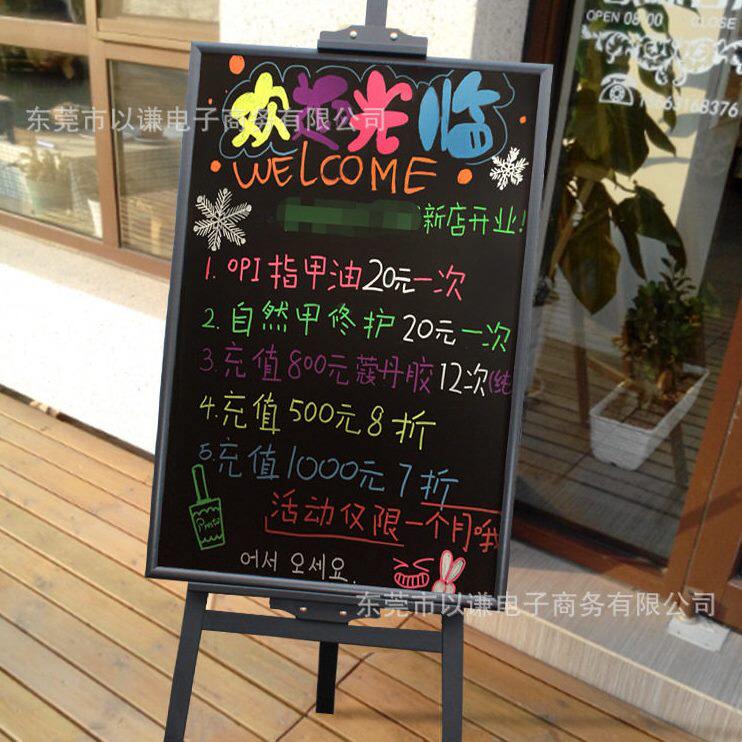 OPEN 08:00 CLOSE
东莞市以谦电子商务有限公司
欢迎光临
WELCOME
新店开业!
1. OPI指甲油20元一次
2. 自然甲修护20元一次
3. 充值800元蔻丹胶12次(纯
4. 充值500元8折
5. 充值1000元7折
活动仅限一个月哦
Presto
어서 오세요.
东莞市以谦电子商务有限公司